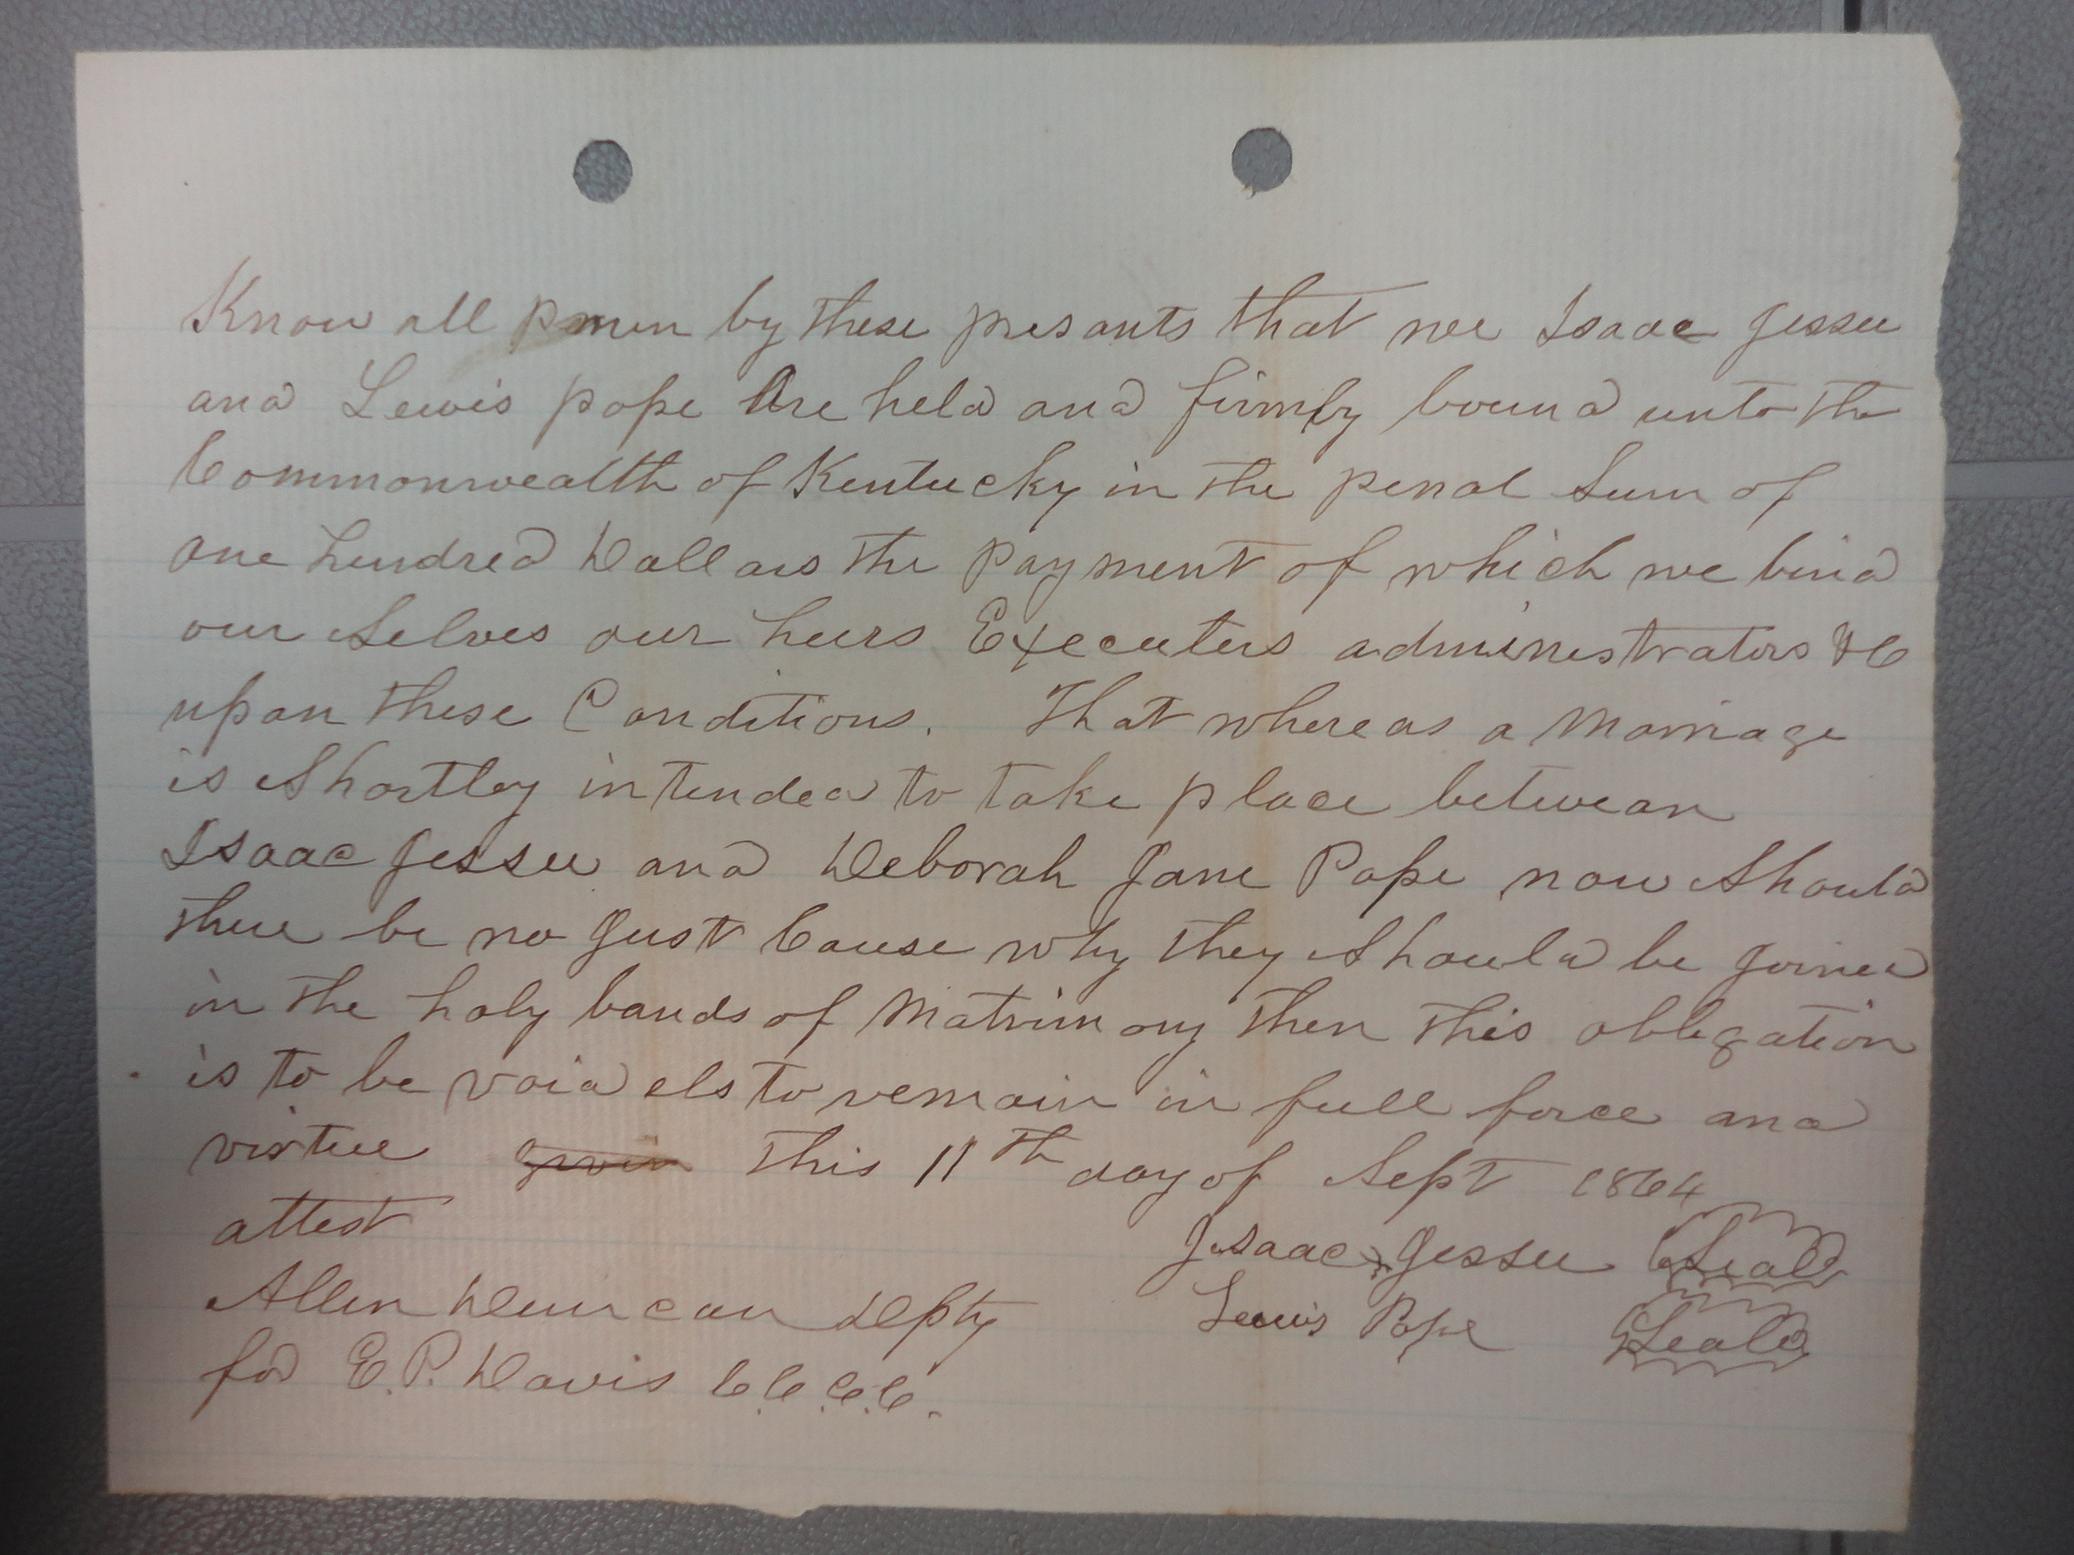 Know all men by these presants that we Isaac Jessee
and Lewis pope Are held and firmly bound unto the
Commonwealth of Kentucky in the penal Sum of
one hundred Dollars the payment of which we bind
our Selves our heirs Executers administrators &C
upon these Conditions. That whereas a Marriage
is Shortley intended to take place betwean
Isaac Jessee and Deborah Jane Pope now Should
there be no Just Cause why they Should be Joined
in the holy bands of Matrimony then this obligation
is to be void els to remain in full force and
virtue given this 11th day of Sept 1864
attest
Isaac Jessee Seal
Allen Duncan Depty
Lewis Pope Seal
for E.P. Davis C.C.C.C.